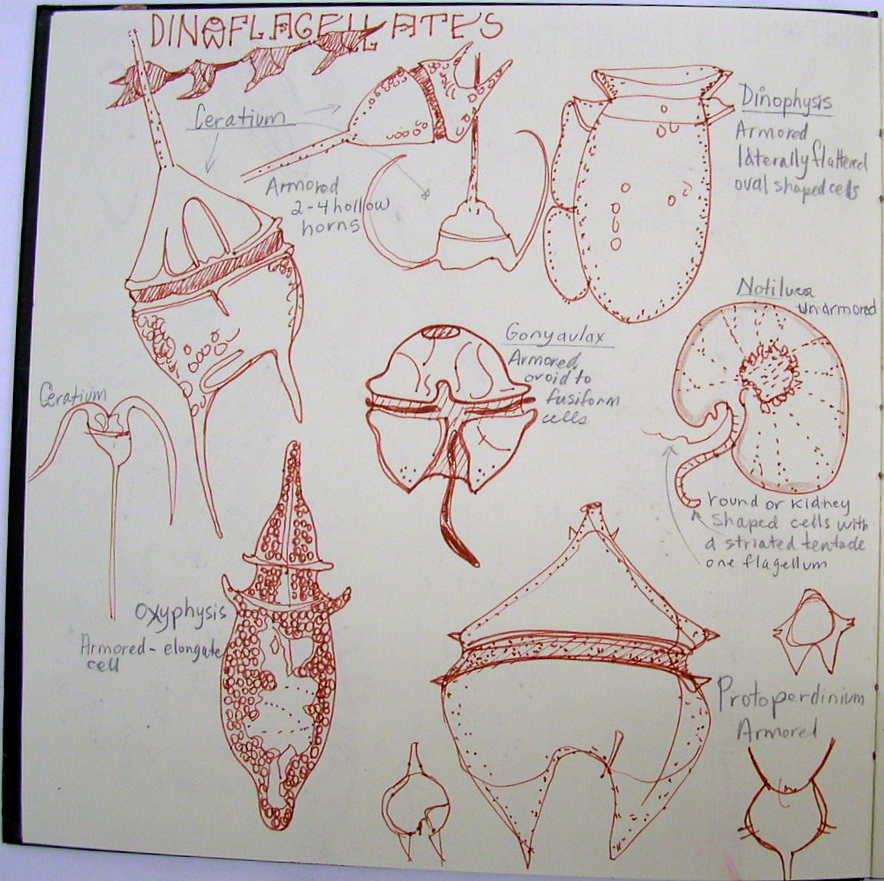 DINOFLAGELLATES
Ceratium
Armored
2-4 hollow
horns
Dinophysis
Armored
laterally flattered
oval shaped cells
Notiluca
unarmored
Gonyaulax
Armored
ovoid to
fusiform
cells
Ceratium
round or kidney
shaped cells with
a striated tentacle
one flagellum
Oxyphysis
Armored - elongate
cell
Protoperdinium
Armored